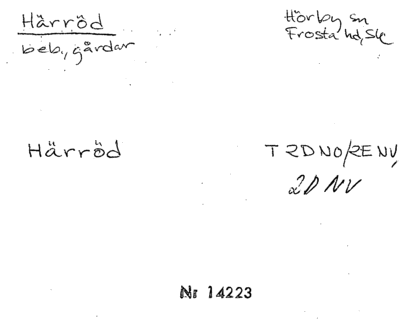 Härröd
beb., gårdar
Hörby sn
Frosta hd, Sk
Härröd
T 2D NO/2E NV,
2D NV
Nr 14223